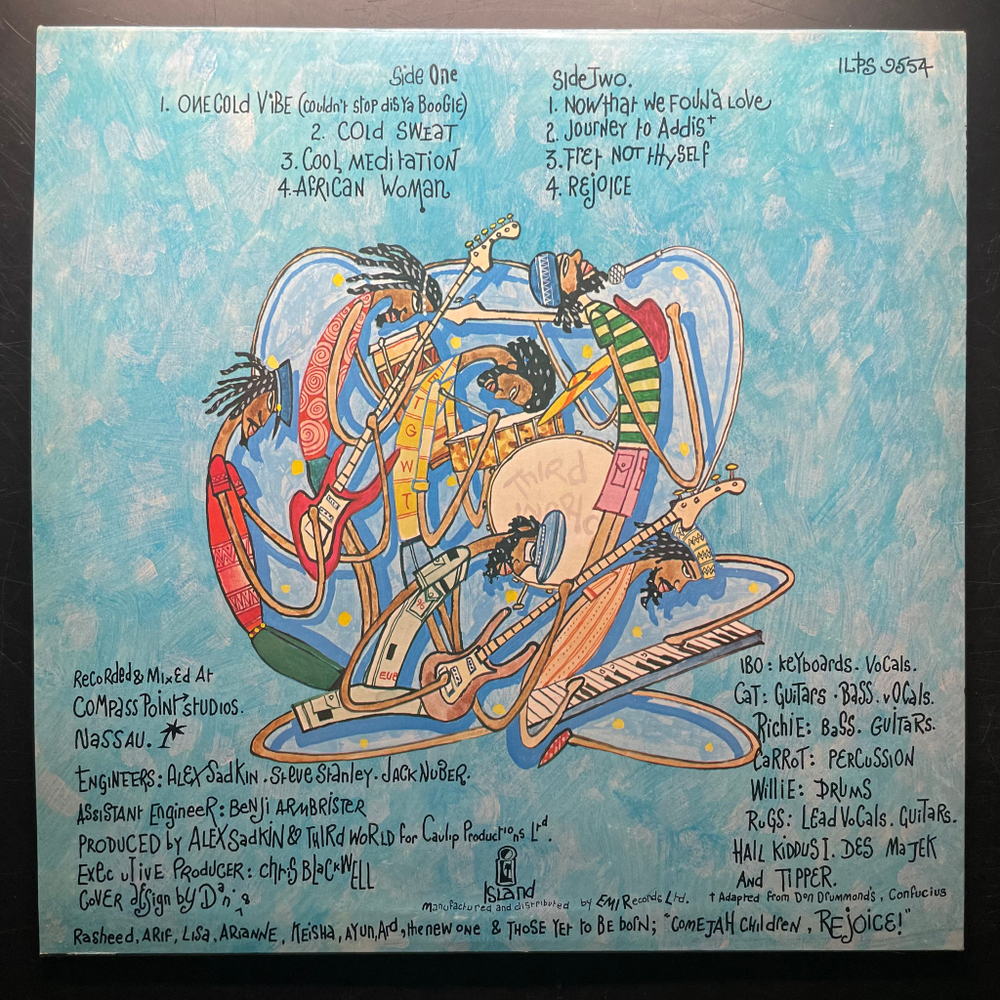 ILPS 9554
Side One
1. ONE COLD VIBE (Couldn't stop dis Ya BooGIE)
2. COLD SWEAT
3. Cool MEDITATION
4. AFRICAN WOMAN
Side Two.
1. NOW that we FOUND LOVE
2. Journey to Addis†
3. FRET NOT tHySElf
4. REjOICE
T
G
W
T
THIRD
WORLD
Recorded & MixEd At
COMPASS POINT STUDIOS.
NASSAU.
ENGINEERS: ALEX SadKIN. Steve Stanley. JACK NUBER.
ASSISTANT Engineer: BENJI ARMBRISTER
PRODUCED by ALEX SadKIN & THIRD WORLD for Caulip Productions Ltd.
EXECUTIVE PRODUCER: chRIS BLACKWELL
COVER dESign by Dan'i
IBO: KEYboards. Vocals.
CAT: GUITARS. BASS. vOCals.
Richie: BASS. GUITARS.
CARROT: PERCUSSION
Willie: DRUMS
RUGS: LEAD VOCALS. GUITARS.
HAIL KIDDUS I. DES MAJEK
AND TIPPER.
Island
Manufactured and distributed by EMI Records Ltd.
† Adapted from Don Drummond's, Confucius
Rasheed, ARIF, LISA, ARIANNE, KEISHA, AYUN, Ard, the new one & THOSE YET to BE boRN; "COME JAH CHildren, REjoicE!"